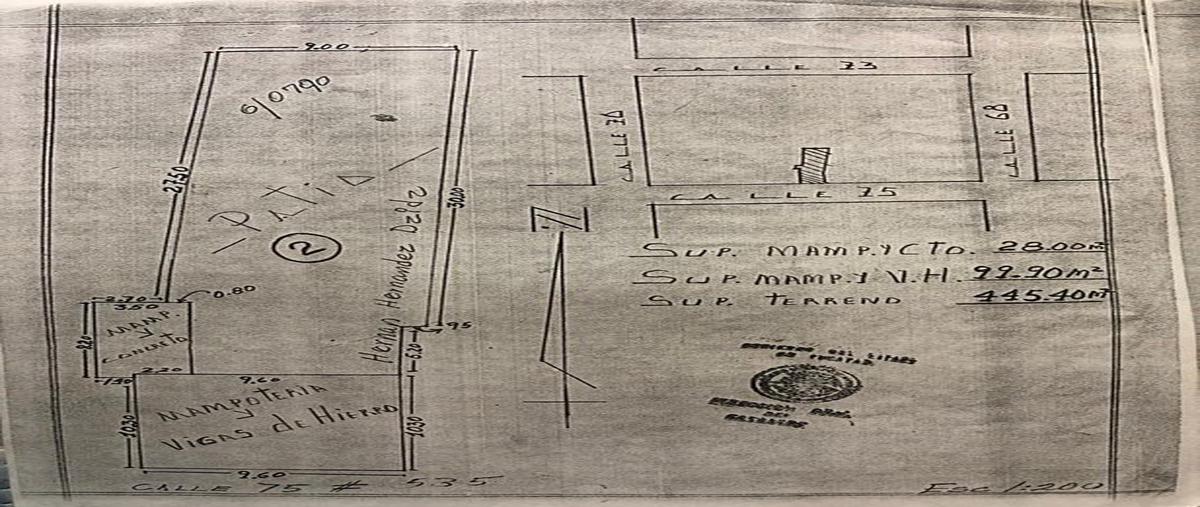 9.00
6/0790
27.50
-PATIO-
2
30.00
Hernan Hernandez
2.70
0.80
3.50
MAMP.
Y
CONCRETO
8.20
.95
5.20
1.30
2.20
9.60
MAMPOTERIA
Y
VIGAS de HIERRO
10.30
10.30
9.60
CALLE 75 # 535
CALLE 73
CALLE 70
CALLE 68
CALLE 75
N
SUP. MAMP. Y CTO. 28.00m²
SUP. MAMP. Y V.H. 99.90m²
SUP. TERRENO 445.40m²
DEL ESTADO
DE YUCATAN
DIRECCION
DEL
CATASTRO
ESC 1:200